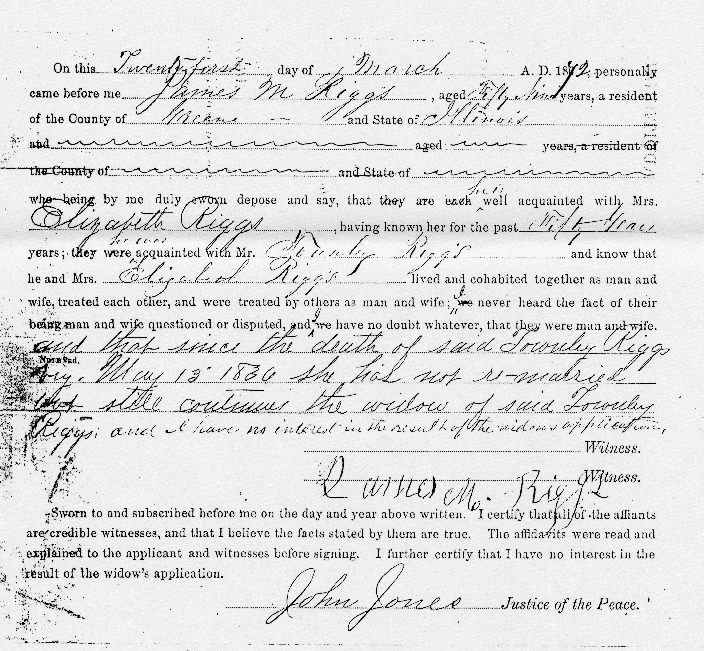 On this Twenty first day of March A. D. 1872, personally
came before me James M Riggs, aged Fifty Nine years, a resident
of the County of Greene and State of Illinois
and aged years, a resident of
the County of and State of
who being by me duly sworn depose and say, that they are each he is well acquainted with Mrs.
Elizabeth Riggs, having known her for the past Fifty Years
years; they were he was acquainted with Mr. Townley Riggs and know that
he and Mrs. Elizabeth Riggs lived and cohabited together as man and
wife, treated each other, and were treated by others as man and wife; we I never heard the fact of their
being man and wife questioned or disputed, and we I have no doubt whatever, that they were man and wife.
and that since the death of said Townley Riggs
May 13 1860 she has not re-married
but still continues the widow of said Townley
Riggs; and I have no interest in the result of the widows application,
Witness.
James M. Riggs Witness.
Sworn to and subscribed before me on the day and year above written. I certify that all of the affiants
are credible witnesses, and that I believe the facts stated by them are true. The affidavits were read and
explained to the applicant and witnesses before signing. I further certify that I have no interest in the
result of the widow's application.
John Jones Justice of the Peace.